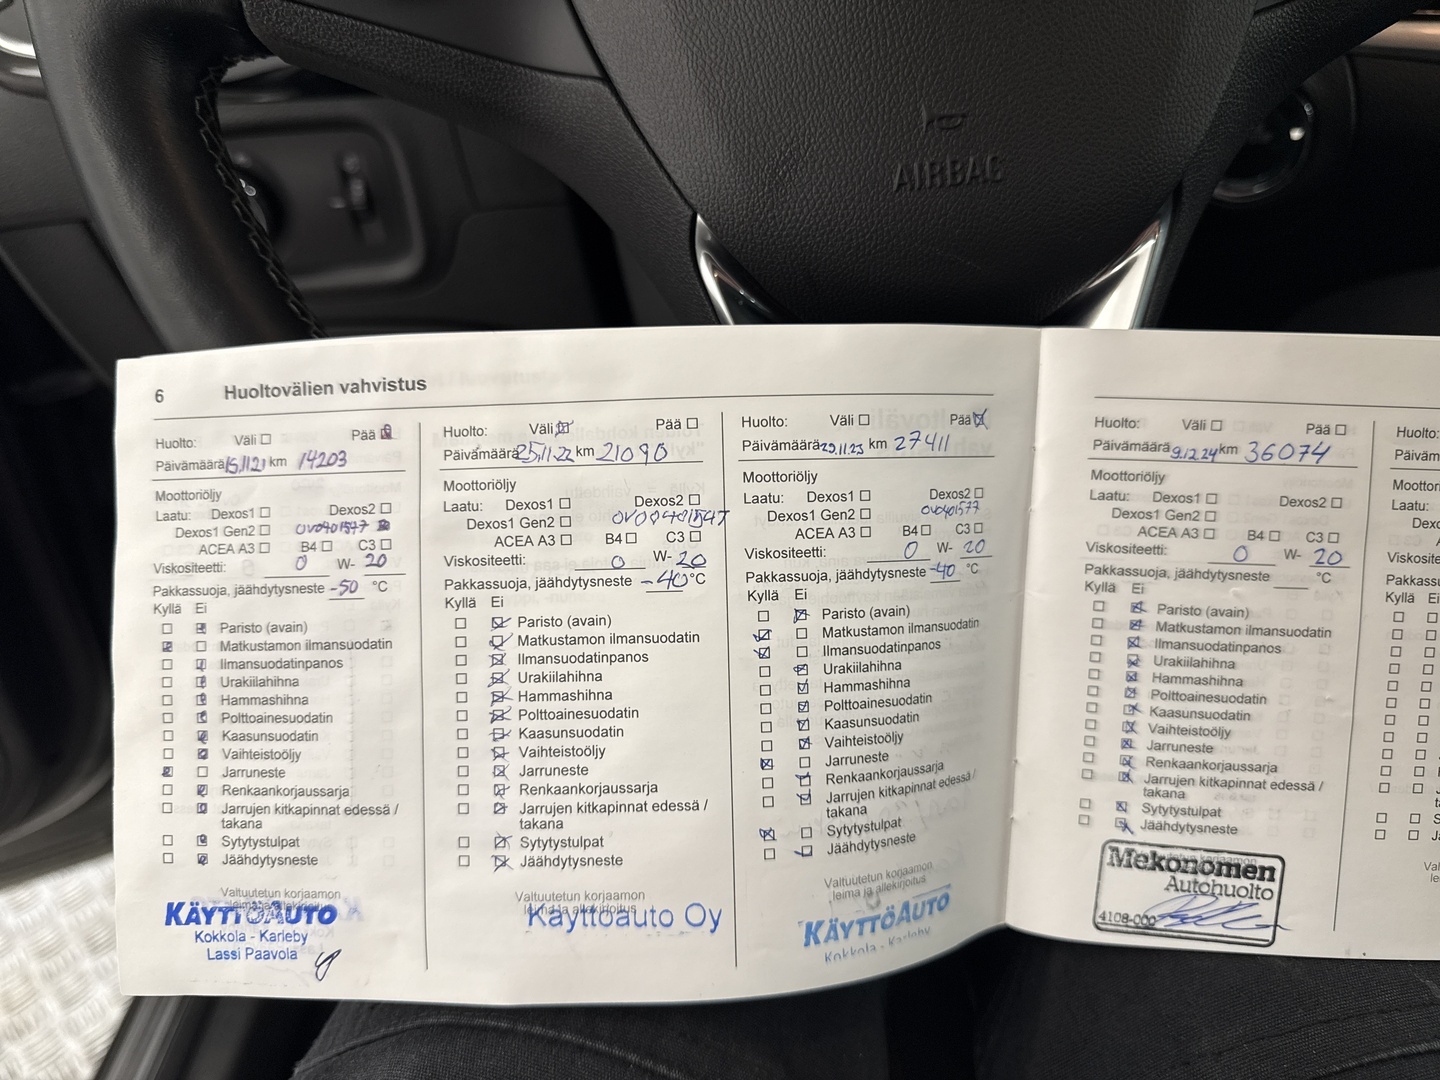 AIRBAG
6 Huoltovälien vahvistus
Huolto: Väli ☐ Pää ☒
Päivämäärä 15.11.21 km 14203
Moottoriöljy
Laatu: Dexos1 ☐ Dexos2 ☐
Dexos1 Gen2 ☐ OV0401577
ACEA A3 ☐ B4 ☐ C3 ☐
Viskositeetti: 0 W- 20
Pakkassuoja, jäähdytysneste -50 °C
Kyllä Ei
☐ ☒ Paristo (avain)
☒ ☐ Matkustamon ilmansuodatin
☐ ☒ Ilmansuodatinpanos
☐ ☒ Urakiilahihna
☐ ☒ Hammashihna
☐ ☒ Polttoainesuodatin
☐ ☒ Kaasunsuodatin
☐ ☒ Vaihteistoöljy
☒ ☐ Jarruneste
☐ ☒ Renkaankorjaussarja
☐ ☒ Jarrujen kitkapinnat edessä /
takana
☐ ☒ Sytytystulpat
☐ ☒ Jäähdytysneste
Valtuutetun korjaamon
leima ja allekirjoitus
KÄYTTÖAUTO
Kokkola - Karleby
Lassi Paavola
Huolto: Väli ☒ Pää ☐
Päivämäärä 25.11.22 km 21090
Moottoriöljy
Laatu: Dexos1 ☐ Dexos2 ☐
Dexos1 Gen2 ☐
ACEA A3 ☐ B4 ☐ C3 ☐
Viskositeetti: 0 W- 20
Pakkassuoja, jäähdytysneste -40 °C
Kyllä Ei
☐ ☒ Paristo (avain)
☐ ☒ Matkustamon ilmansuodatin
☐ ☒ Ilmansuodatinpanos
☐ ☒ Urakiilahihna
☐ ☒ Hammashihna
☐ ☒ Polttoainesuodatin
☐ ☒ Kaasunsuodatin
☐ ☒ Vaihteistoöljy
☐ ☒ Jarruneste
☐ ☒ Renkaankorjaussarja
☐ ☒ Jarrujen kitkapinnat edessä /
takana
☐ ☒ Sytytystulpat
☐ ☒ Jäähdytysneste
Valtuutetun korjaamon
leima ja allekirjoitus
Käyttöauto Oy
Huolto: Väli ☐ Pää ☒
Päivämäärä 29.11.23 km 27411
Moottoriöljy
Laatu: Dexos1 ☐ Dexos2 ☐
Dexos1 Gen2 ☐ OV0401577
ACEA A3 ☐ B4 ☐ C3 ☐
Viskositeetti: 0 W- 20
Pakkassuoja, jäähdytysneste -40 °C
Kyllä Ei
☐ ☒ Paristo (avain)
☒ ☐ Matkustamon ilmansuodatin
☒ ☐ Ilmansuodatinpanos
☐ ☒ Urakiilahihna
☐ ☒ Hammashihna
☐ ☒ Polttoainesuodatin
☐ ☒ Kaasunsuodatin
☐ ☒ Vaihteistoöljy
☒ ☐ Jarruneste
☐ ☒ Renkaankorjaussarja
☐ ☒ Jarrujen kitkapinnat edessä /
takana
☒ ☐ Sytytystulpat
☐ ☒ Jäähdytysneste
Valtuutetun korjaamon
leima ja allekirjoitus
KÄYTTÖAUTO
Kokkola - Karleby
Huolto: Väli ☐ Pää ☐
Päivämäärä 9.12.24 km 36074
Moottoriöljy
Laatu: Dexos1 ☐ Dexos2 ☐
Dexos1 Gen2 ☐
ACEA A3 ☐ B4 ☐ C3 ☐
Viskositeetti: 0 W- 20
Pakkassuoja, jäähdytysneste °C
Kyllä Ei
☐ ☒ Paristo (avain)
☐ ☒ Matkustamon ilmansuodatin
☐ ☒ Ilmansuodatinpanos
☐ ☒ Urakiilahihna
☐ ☒ Hammashihna
☐ ☒ Polttoainesuodatin
☐ ☒ Kaasunsuodatin
☐ ☒ Vaihteistoöljy
☐ ☒ Jarruneste
☐ ☒ Renkaankorjaussarja
☐ ☒ Jarrujen kitkapinnat edessä /
takana
☐ ☒ Sytytystulpat
☐ ☒ Jäähdytysneste
Mekonomen
Autohuolto
4108-000
Huolto:
Päiväm
Moottori
Laatu:
Dexo
AC
Viskosite
Pakkassu
Kyllä Ei